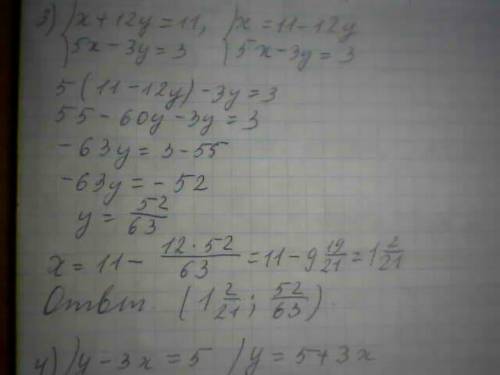 3) { x + 12y = 11, { x = 11 - 12y
5x - 3y = 3 5x - 3y = 3
5(11 - 12y) - 3y = 3
55 - 60y - 3y = 3
-63y = 3 - 55
-63y = -52
y = 52/63
x = 11 - 12·52/63 = 11 - 9 19/21 = 1 2/21
Ответ (1 2/21; 52/63).
4) { y - 3x = 5 { y = 5 + 3x